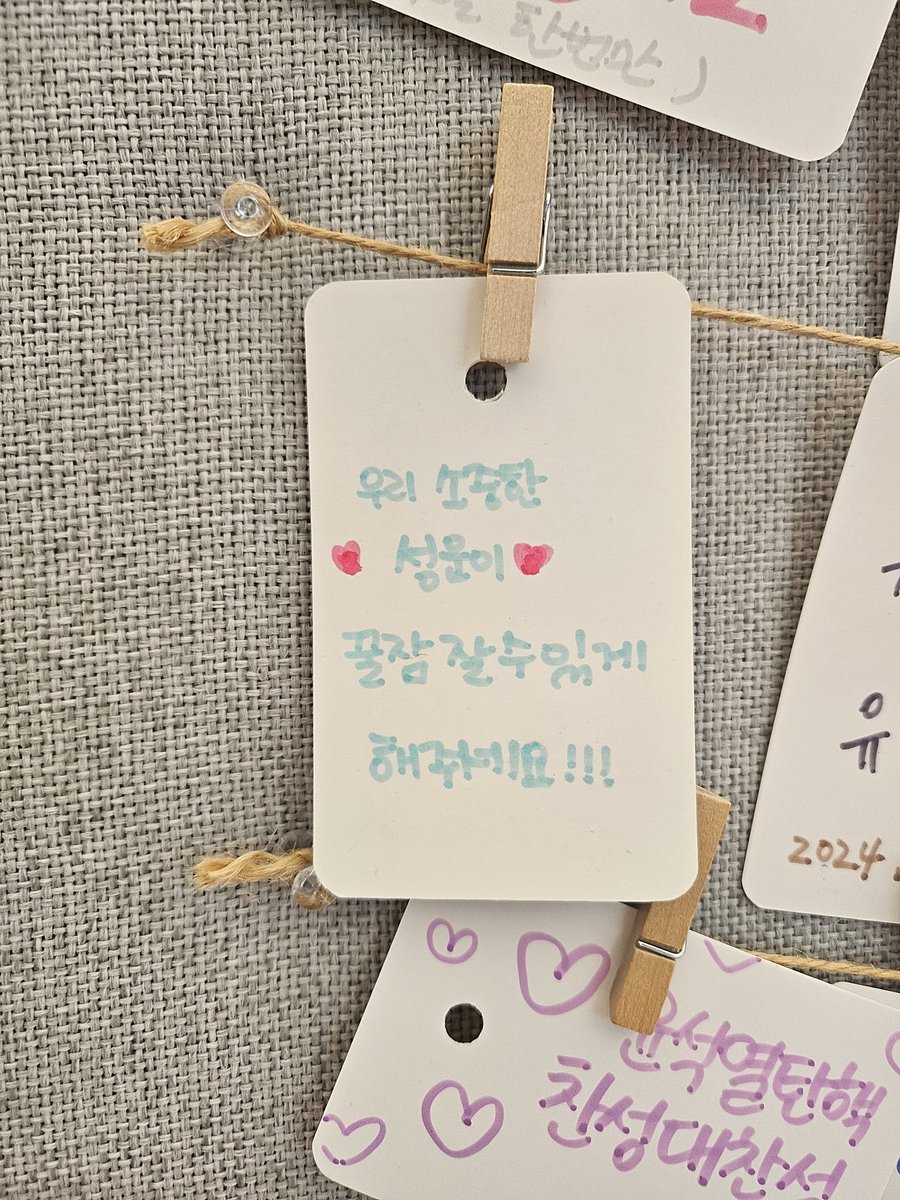 탄번만)
우리 소중한
성운이
꿀잠 잘수있게
해주세요!!!
유
2024.
윤석열탄핵
찬성대찬성